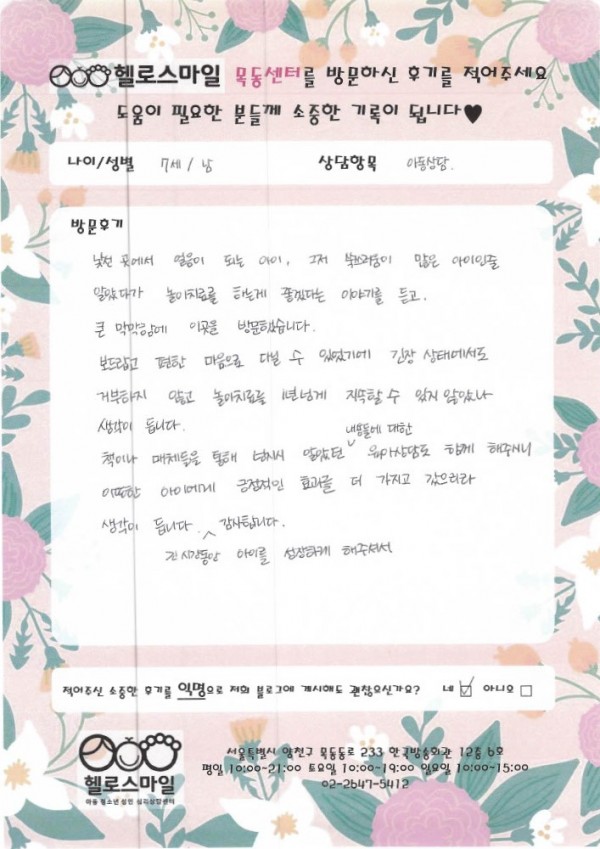 헬로스마일 목동센터를 방문하신 후기를 적어주세요
도움이 필요한 분들께 소중한 기록이 됩니다♥
나이/성별 7세 / 남 상담항목 아동상담.
방문후기
낯선 곳에서 얼음이 되는 아이, 그저 부끄러움이 많은 아이인줄
알았다가 놀이치료를 하는게 좋겠다는 이야기를 듣고.
큰 막막함에 이곳을 방문했습니다.
보드랍고 편한 마음으로 다닐 수 있었기에 긴장 상태에서도
거부하지 않고 놀이치료를 1년넘게 지속할 수 있지 않았나
생각이 듭니다.
내용들에 대한
책이나 매체들을 통해 알았던 ∨ 육아상담도 함께 해주시니
아이에게 긍정적인 효과를 더 가지고 갔으리라
생각이 듭니다. ∧ 감사합니다.
긴 시간동안 아이를 성장하게 해주셔서
적어주신 소중한 후기를 익명으로 저희 블로그에 게시해도 괜찮으신가요? 네 ☑ 아니오 □
헬로스마일
아동 청소년 성인 심리상담센터
서울특별시 양천구 목동동로 233 한국방송회관 12층 6호
평일 10:00~21:00 토요일 10:00~19:00 일요일 10:00~15:00
02-2647-5412